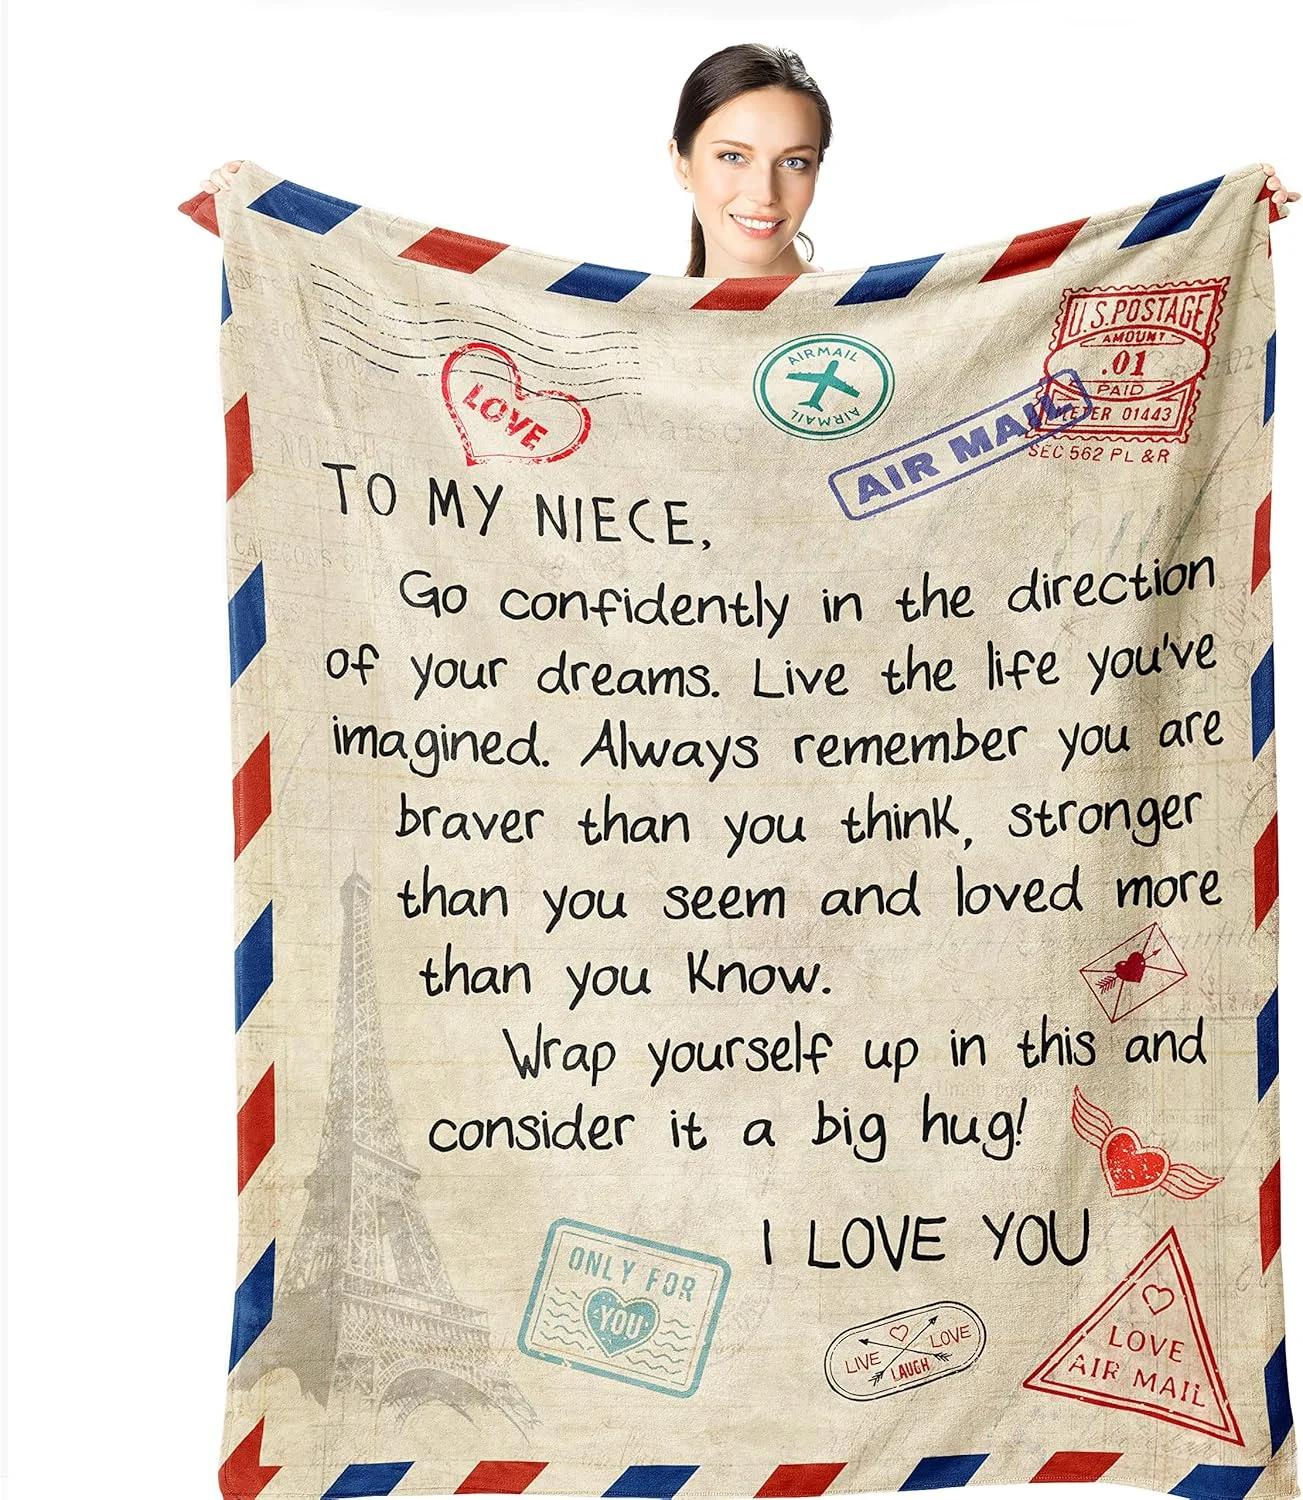 U.S. POSTAGE
AMOUNT
.01
PAID
METER 01443
SEC 562 PL & R
AIRMAIL
AIRMAIL
AIR MAIL
LOVE
TO MY NIECE,
Go confidently in the direction
of your dreams. Live the life you've
imagined. Always remember you are
braver than you think, stronger
than you seem and loved more
than you know.
Wrap yourself up in this and
consider it a big hug!
I LOVE YOU
ONLY FOR
YOU
LIVE
LOVE
LAUGH
LOVE
AIR MAIL